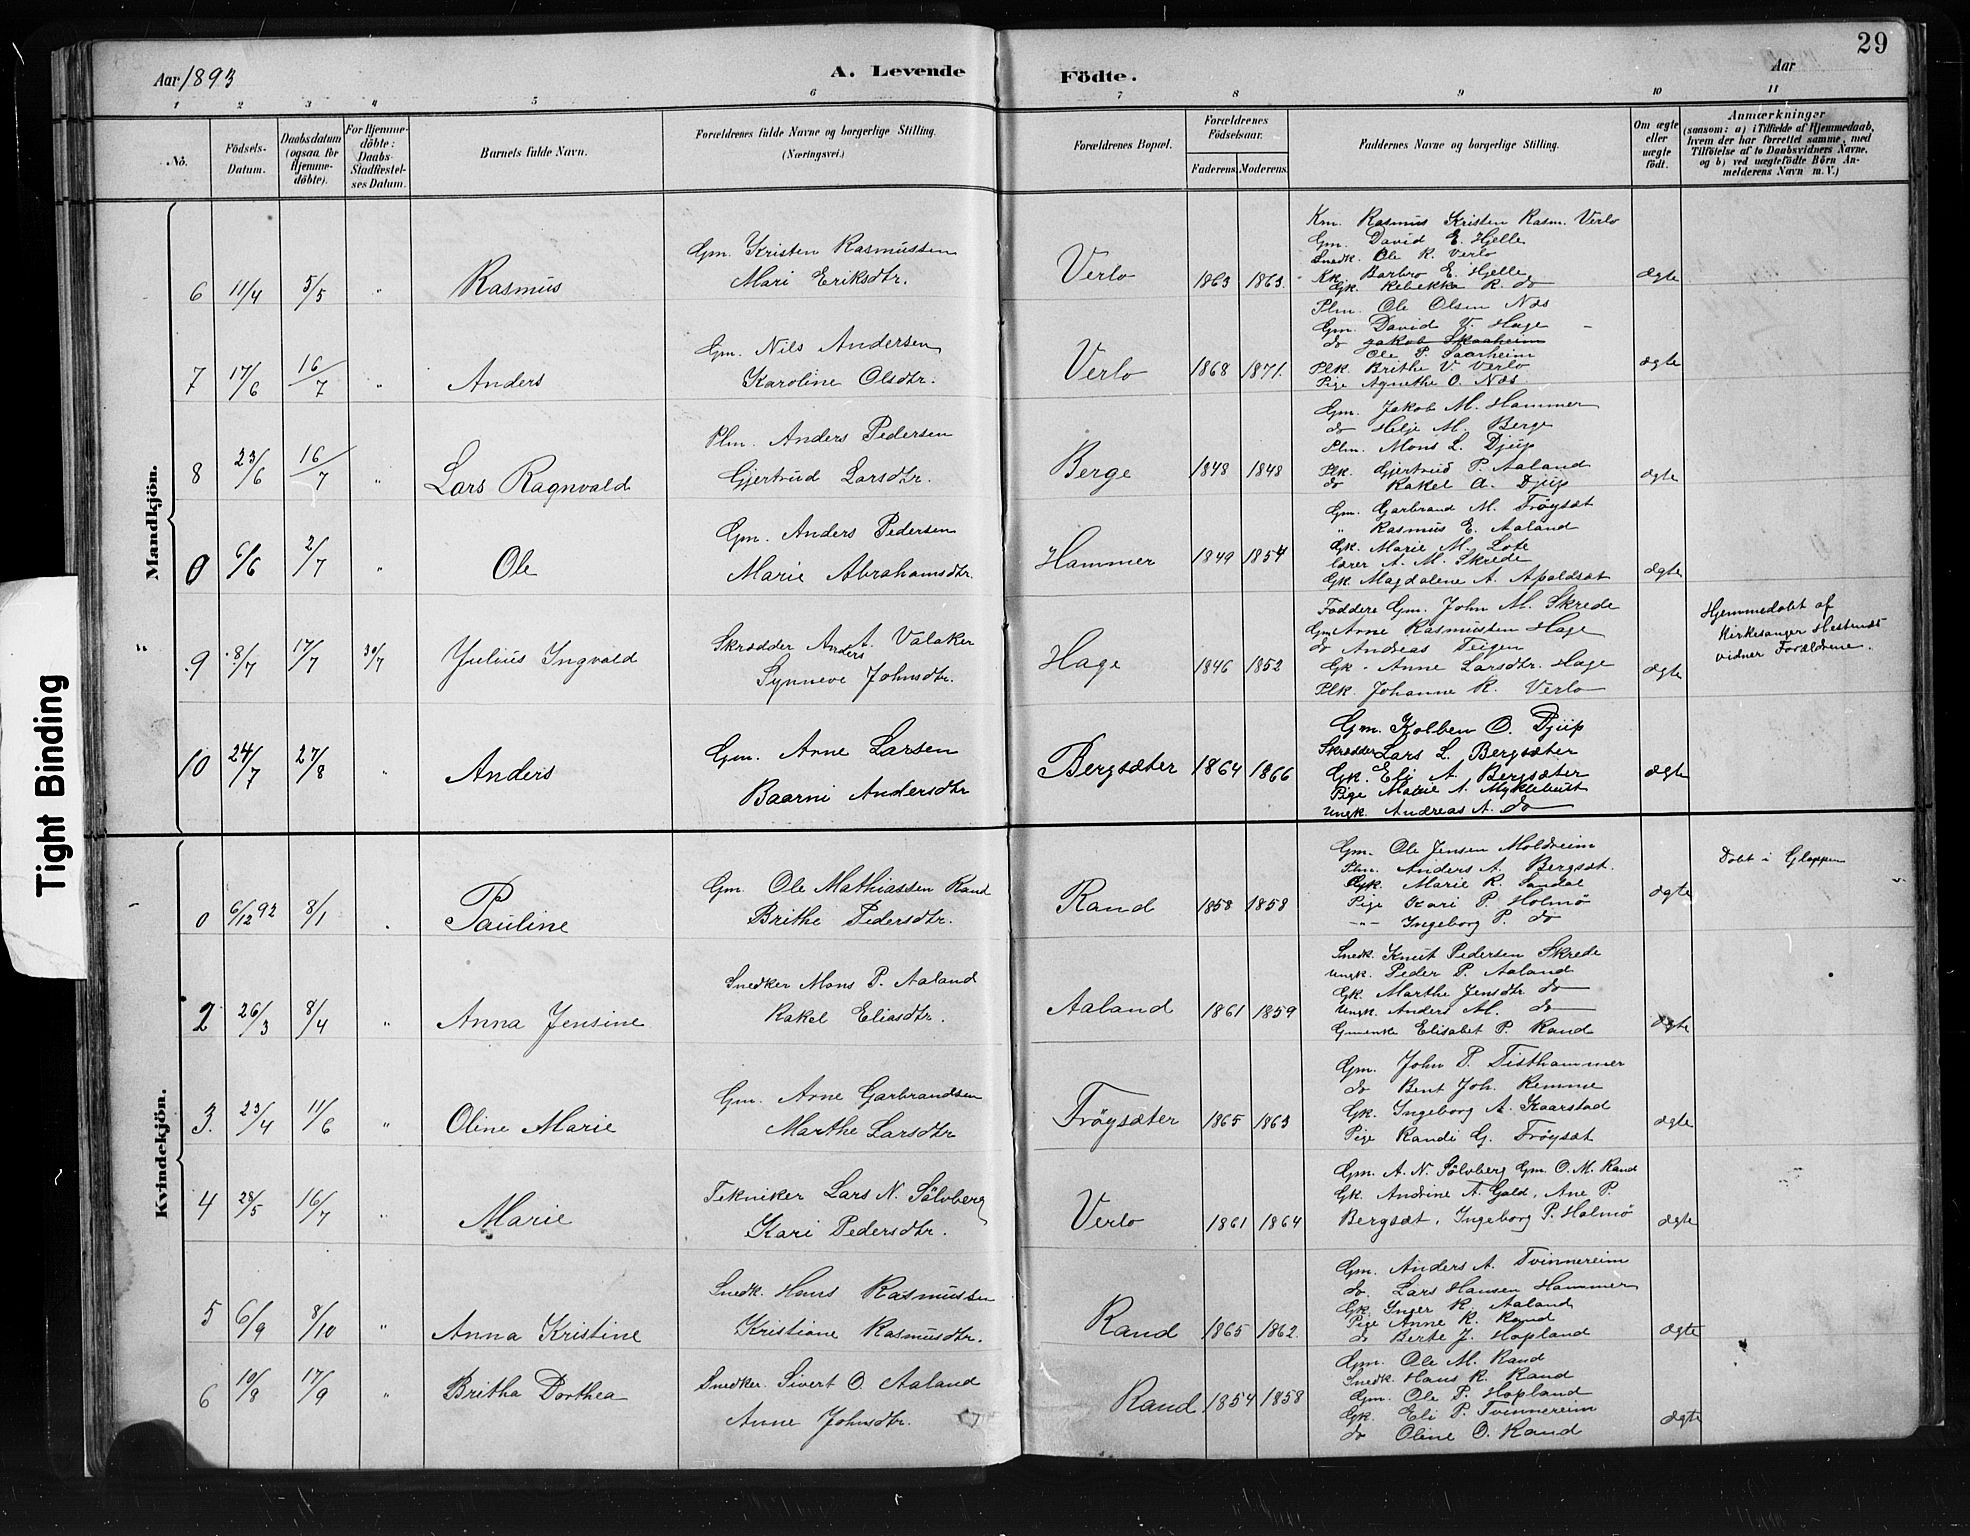 29
Aar 1893
A. Levende Födte.
Aar
1 2 3 4 5 6 7 8 9 10 11
No.
Födsels-Datum.
Daabsdatum (ogsaa for Hjemme-döbte).
For Hjemme-döbte: Daabs-Stadfæstel-ses Datum.
Barnets fulde Navn.
Forældrenes fulde Navne og borgerlige Stilling.
(Næringsvei.)
Forældrenes Bopæl.
Forældrenes Födselsaar.
Faderens. Moderens.
Faddernes Navne og borgerlige Stilling.
Om ægte eller uægte födt.
Anmærkninger
(saasom: a) i Tilfælde af Hjemmedaab, hvem der har forrettet samme, med Tilföielse af to Daabsvidners Navne, og b) ved uægtefödte Börn An-melderens Navn m. V.)
Mandkjön.
6 11/4 5/5 " Rasmus
Gm. Kristen Rasmussen
Mari Eriksdtr.
Verlo 1863 1863
Km. Rasmus Kristen Rasm. Verlo
Gm. David E. Hjelle
Snedk. Ole R. Verlo
Kk. Barbro E. Hjelle
Gk. Rebekka R. do
ægte
7 17/6 16/7 " Anders
Gm. Nils Andersen
Karoline Olsdtr.
Verlo 1868 1871.
Plm. Ole Olsen Næs
Gm. David V. Hage
do Jakob Skaaheim
Ole P. Saarheim
Plk. Brithe V. Verlo
Pige Agnethe O. Næs.
ægte
8 23/6 16/7 " Lars Ragnvald
Plm. Anders Pedersen
Gjertrud Larsdtr.
Berge 1848 1848
Gm. Jakob M. Hammer
do Helje M. Berge
Plm. Mons L. Djup
Plk. Gjertrud P. Aaland
do Rakel A. Djup
ægte
0 6/6 2/7 " Ole
Gm. Anders Pedersen
Marie Abrahamsdtr.
Hammer 1849 1854
Gm. Garbrand M. Fröysæt
" Rasmus E. Aaland
Gk. Marie M. Lote
Lærer A. M. Skrede
Gk. Magdalene A. Apaldsæt
ægte
9 8/7 17/7 30/7 Julius Ingvald
Skrædder Anders A. Valaker
Synneve Johnsdtr.
Hage 1846 1852
Faddere Gm. John M. Skrede
Gm Arne Rasmussen Hage
do Andreas Teigen
Gk. Anne Larsdtr. Hage
Plk. Johanne R. Verlo
ægte
Hjemmedøbt af
Kirkesanger Hestenes
vidner Forældrene.
10 24/7 27/8 " Anders
Gm. Arne Larsen
Baarni Andersdtr
Bergsæter 1864 1866
Gm. Kolben O. Djup
Skrædder Lars L. Bergsæter
Gk. Eli A. Bergsæter
Pige Marie A. Myklebust
Ungk. Andreas A. do
ægte
Kvindekjön.
0 6/12 92 8/1 . Pauline
Gm. Ole Mathiassen Rand
Brithe Pedersdtr.
Rand 1858 1858
Gm. Ole Jensen Moldreim
Plm. Anders A. Bergsæt.
Gk. Marie R. Sandal
Pige Kari P. Holmø
-"- Ingeborg P. do
ægte
Døbt i Gloppen
2 26/3 8/4 " Anna Jensine
Snedker Mons P. Aaland
Rakel Eliasdtr.
Aaland 1861 1859
Snedk. Knut Pedersen Skrede
Ungk. Peder P. Aaland
Gk. Marthe Jensdtr do
Ungk. Anders M. do
Gmenke Elisabet P. Rand
ægte
3. 23/4 11/6 " Oline Marie
Gm. Arne Garbrandsen
Marthe Larsdtr
Fröysæter 1865 1863
Gm. John P. Tisthammer
do Bent Joh. Remme
Gk. Ingeborg A. Kaarstad
Pige Randi G. Fröysæt
ægte
4 28/5 16/7 " Marie
Tekniker Lars N. Sölvberg
Kari Pedersdtr.
Verlo 1861 1864
Gm. A. N. Sölvberg Gm. O. M. Rand
Gk. Andrine A. Gald, Ane P.
Bergsæt, Ingeborg P. Holmö
ægte
5 6/9 8/10 " Anna Kristine
Snedk. Hans Rasmussen
Kristiane Rasmusdtr.
Rand 1865 1862.
Gm. Anders A. Tvinnereim
do. Lars Hansen Hammer
Gk. Inger R. Aaland
Pige Anne R. Rand
do Berte J. Hopland
ægte
6 10/8 17/9 " Britha Dorthea
Snedker. Sivert O. Aaland
Anne Johnsdtr.
Rand 1854 1858
Gm. Ole M. Rand
Snedk. Hans R. Rand
Gm. Ole P. Hopland
Gk. Eli P. Tvinnereim
do Oline O. Rand
ægte
Tight Binding